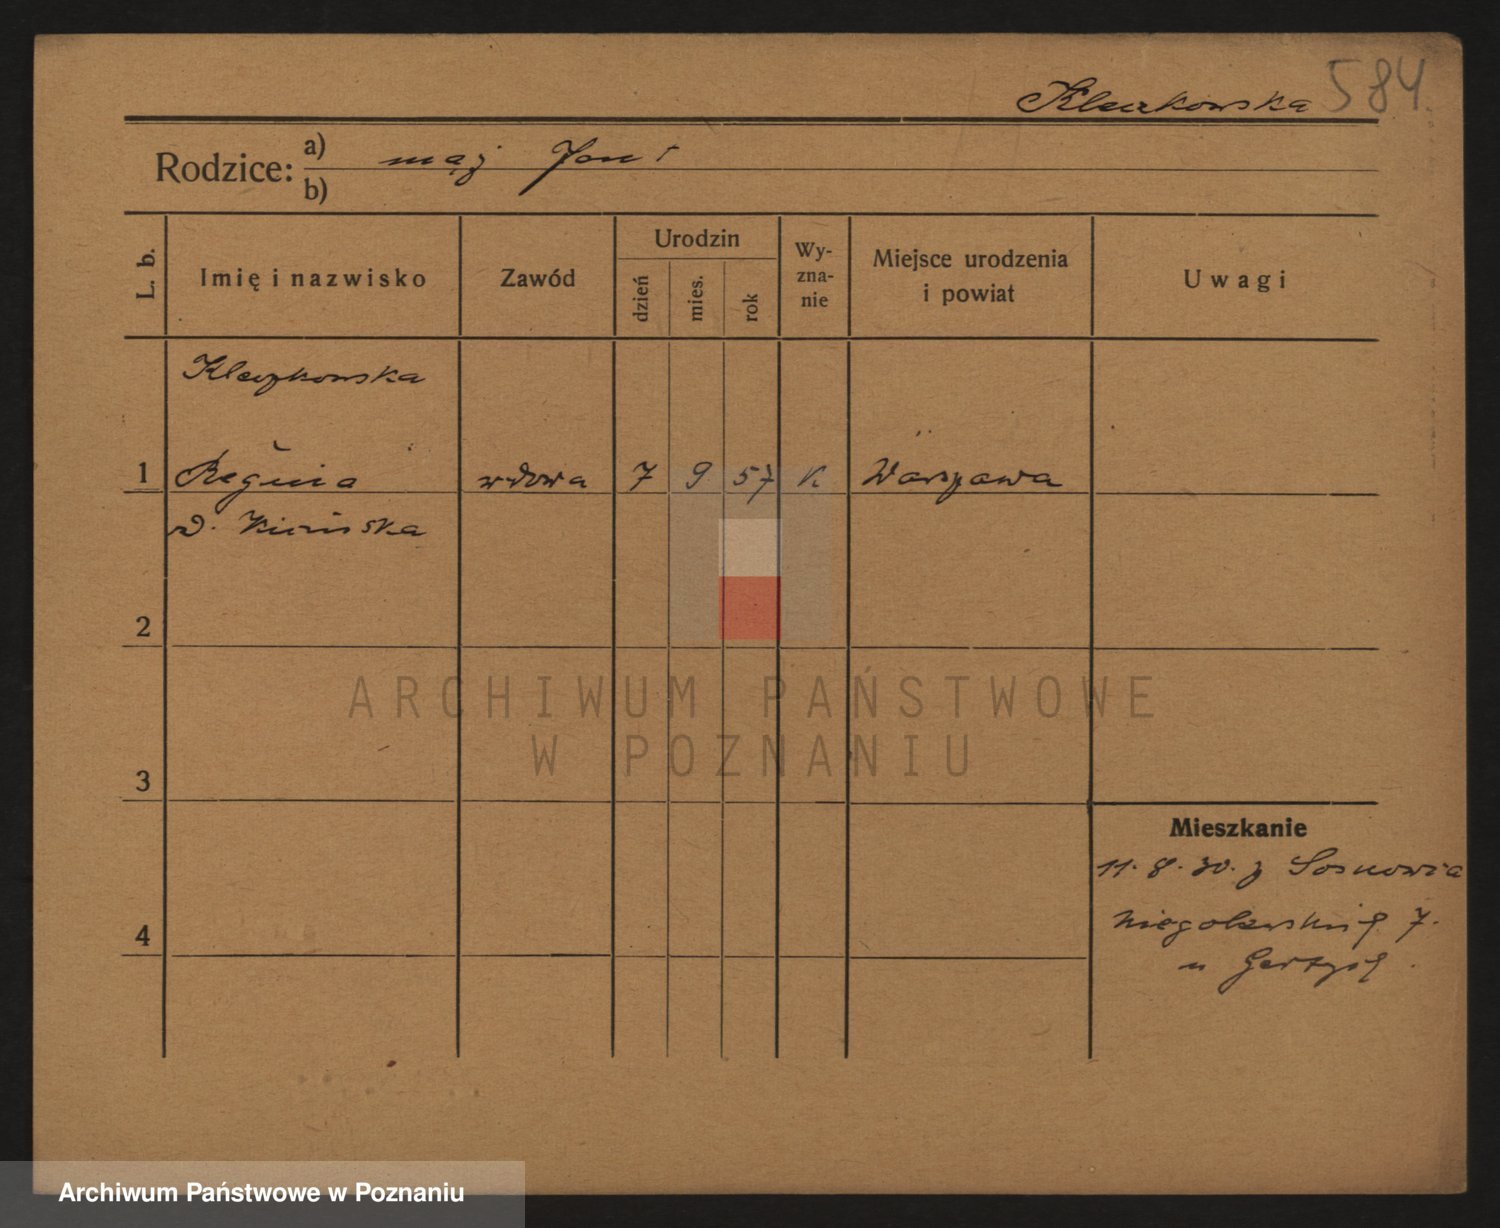 Kleczkowska 584
Rodzice: a) mąż Jan †
b)
L. b. Imię i nazwisko Zawód Urodzin dzień mies. rok Wy-zna-nie Miejsce urodzenia i powiat Uwagi
Kleczkowska
1 Regina wdowa 7 9 57 K Warszawa
2
3
4
Mieszkanie
11.8.30. z Sosnowca
Niegolewskich 7.
u
ARCHIWUM PAŃSTWOWE
W POZNANIU
Archiwum Państwowe w Poznaniu